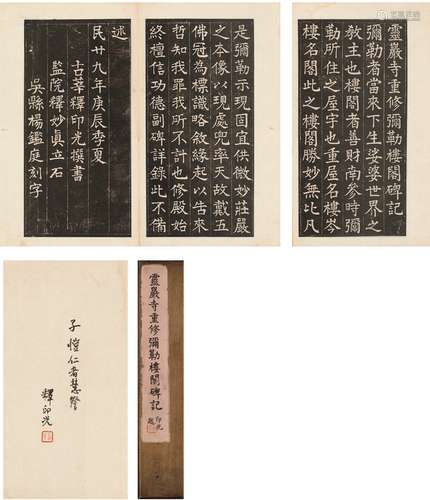 靈巖寺重修彌勒樓閣碑記
彌勒者當來下生娑婆世界之
教主也樓閣者善財南參時彌
勒所住之屋宇也重屋名樓岑
樓名閣此之樓閣勝妙無比凡
是彌勒示現固宜供微妙莊嚴
之本像以現處兜率天故戴五
佛冠為標識略敘緣起以告來
哲知我罪我所不計也修殿始
終檀信功德副碑詳錄此不備
述
民廿九年庚辰季夏
古莘釋印光撰書
監院釋妙真立石
吳縣楊鑑庭刻字
靈巖寺重修彌勒樓閣碑記
印光
題
子愷仁者慧詧
釋印光